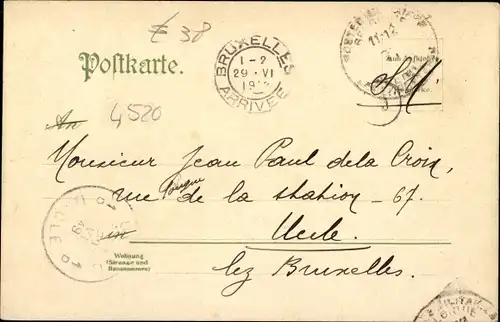 € 38
Postkarte.
BRUXELLES
1-2
29 VI
ARRIVEE
11-12
4520
An
Monsieur Jean Paul de la Croix,
rue longue de la station - 67.
in
Uccle.
lez Bruxelles.
Wohnung
(Strasse und
Hausnummer)